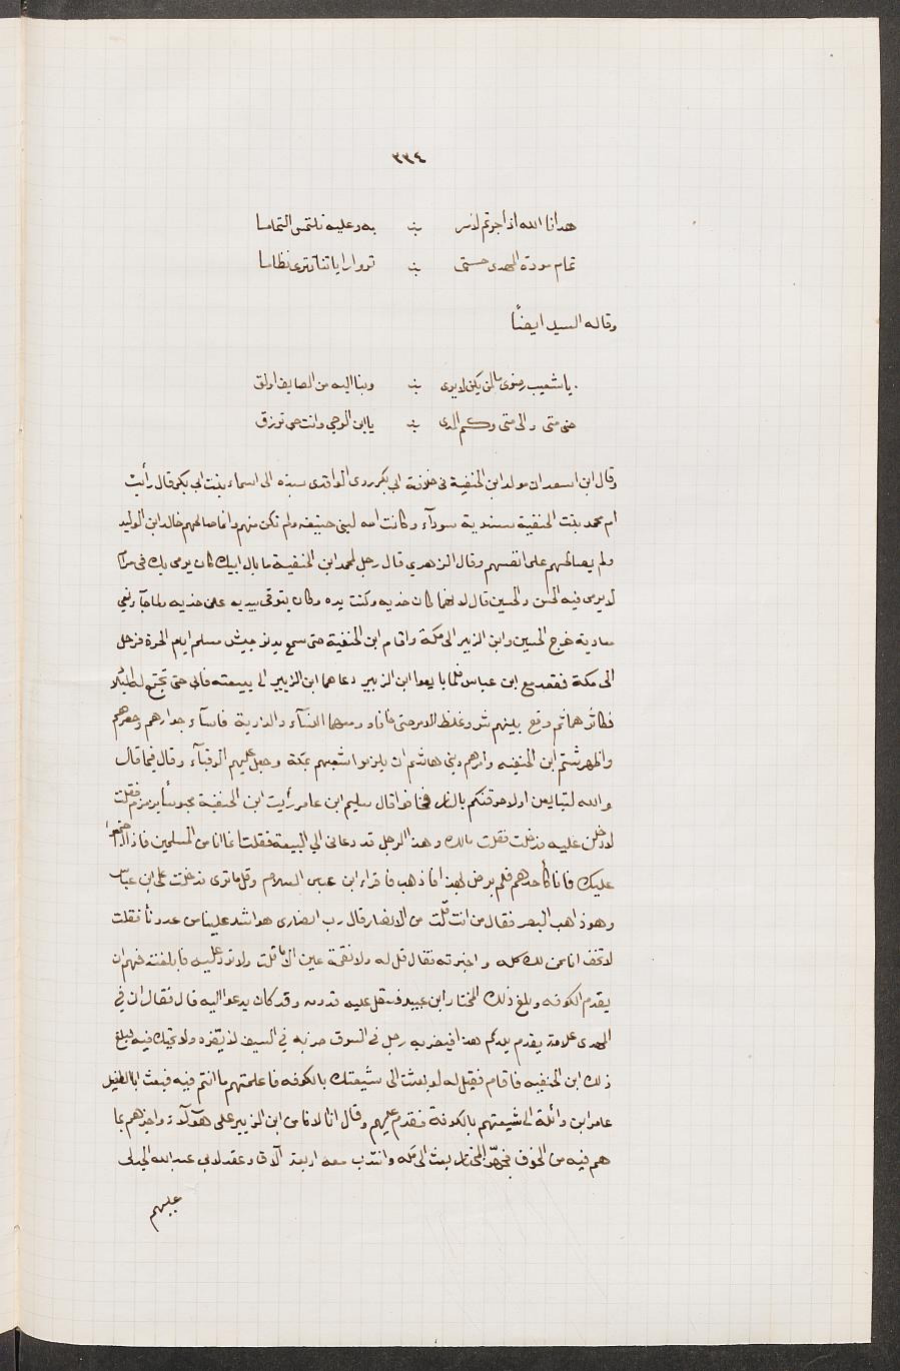 ٣٣٤
هدانا الله اذ اجرتم لامر به وعليه نلتمس التماسا
تمام مودة المهدى حتى تروا راياتنا تترى نظاما
وقاله السيد ايضاً
يا شعيب رضوى ما لمن بك لا يرى وبنا اليه من الصبابة اولق
حتى متى والى متى وكم المدى يا ابن الوصي وانت حي ترزق
وقال ابن اسعد ان مولد ابن الحنفية فى خلافة ابي بكر روى الواقدى بسنده الى اسماء بنت ابي بكر قال رأيت
ام محمد بنت الحنفية سندية سودآء وكانت امه لبنى حنيفه ولم تكن منهم وانما صالحهم خالد ابن الوليد
ولم يصالحهم على انفسهم وقال الزهري قال رجل لمحمد ابن الحنفية ما بال ابيك كان يرمى بك فى مرآ
لا يرمى فيه الحسن والحسين قال لانهما كان خديه وكنت يده وكان يتوقى بيديه على خديه ولما جآء نعي
معاوية خرج الحسين وابن الزبير الى مكة واقام ابن الحنفية حتى سمع بدنو جيش مسلم ايام الحرة فرحل
الى مكة فقعد مع ابن عباس فلما بايعوا ابن الزبير دعاهما ابن الزبير الى بيعته فابى حتى تجتمع له البلاد
فكاثرهما ثم وقع بينهم شر وغلظ الامر حتى خافاه ومعهما النسآء والذرية فاسآء جوارهم وحصرهم
واظهر شتم ابن الحنفيه وامرهم وبنى هاشم ان يلزموا شعبهم بمكة وجعل عليهم الرقبآء وقال فيما قال
والله لتبايعن او لاحرقنكم بالنار فخافوا قال سليم ابن عامر رأيت ابن الحنفية محبوساً بزمزم فقلت
لادخلن عليه فدخلت فقلت مالك وهذا الرجل قد دعانى الي البيعة فقلت انما انا من المسلمين فاذا اجتمعوا
عليك فانا كأحدهم فلم يرض بهذا منى فاذهب فاقراء ابن عباس السلام وقل ما ترى فدخلت على ابن عباس
وهو ذاهب البصر فقال من انت قلت من الانصار قال رب انصارى هو اشد علينا من عدونا فقلت
لا تخف انا ممن لك كله واخبرته فقال قل له ولا نقمة عين الا ما قلت ولا تزد عليه فابلغته فهم ان
يقدم الكوفه وبلغ ذلك المختار ابن عبيد فثقل عليه قدومه وقد كان يدعو اليه قال فقال ان فى
المهدى علامة يقدم بلدكم هذا فيضربه رجل فى السوق ضربة في السيف لا تضره ولا تحيك فيه فبلغ
ذلك ابن الحنفيه فاقام فقيل له لو بعثت الى شيعتك بالكوفه فاعلمتهم ما انتم فيه فبعث ابا الطفيل
عامر ابن واثلة الى شيعتهم بالكوفة فقدم عليهم وقال انا لا نامن ابن الزبير على هؤلاء واخبرهم بما
هم فيه من الخوف فجهّز المختار بعث الى مكه وانتدب معه اربعة آلاف وعقد لابى عبد الله الجدلى
عليهم